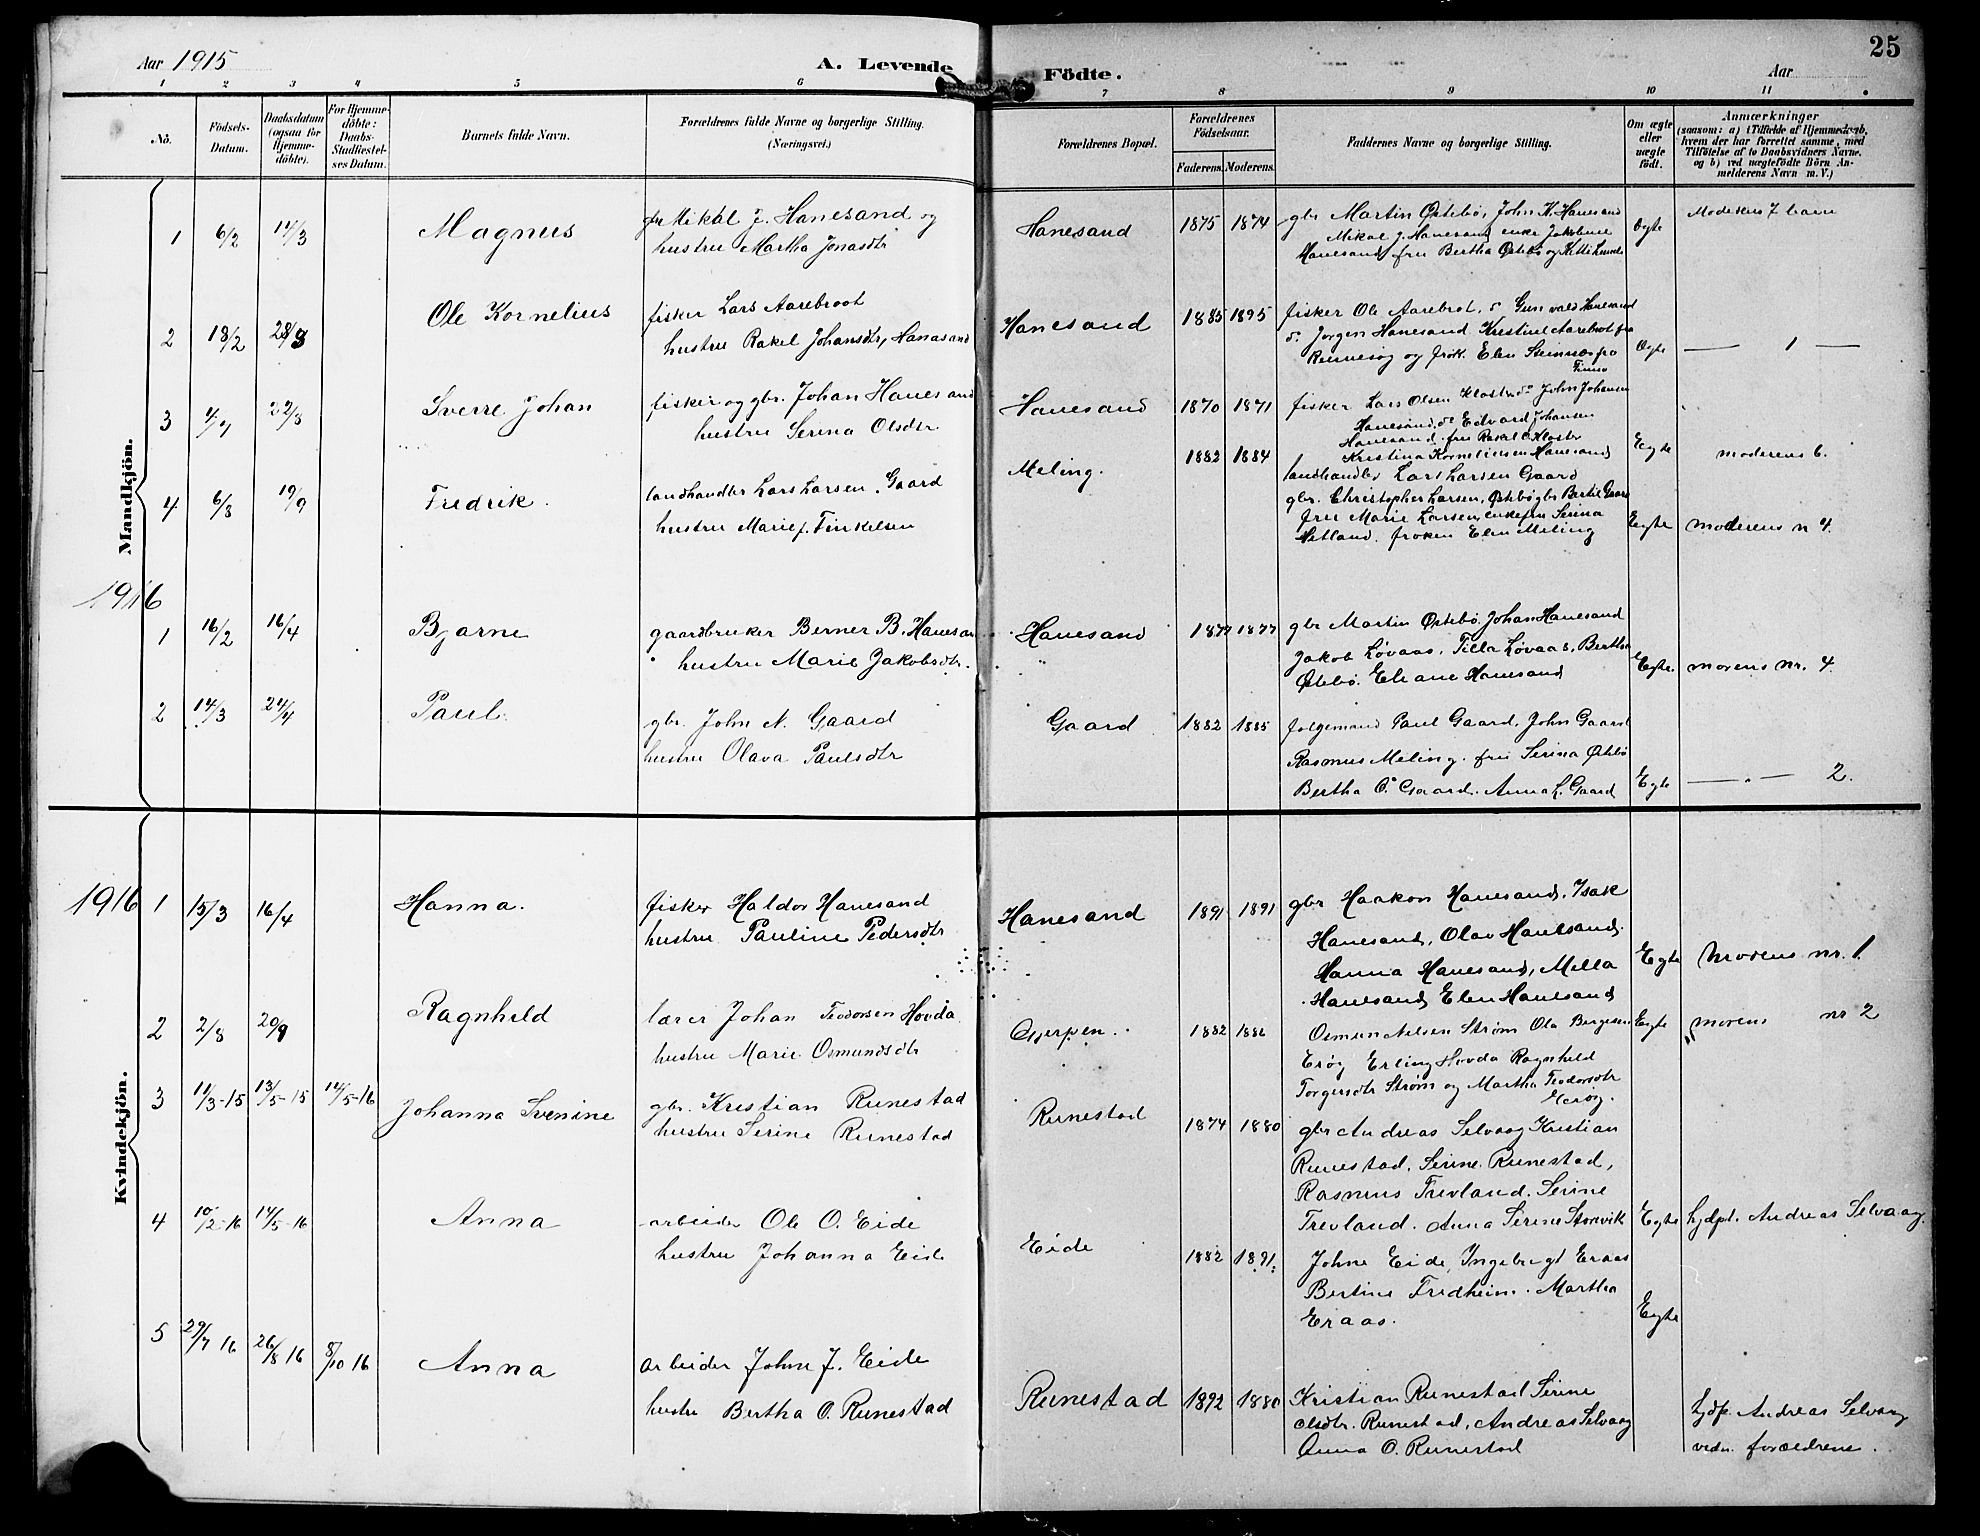 25
Aar 1915 A. Levende Födte. Aar
1 2 3 4 5 6 7 8 9 10 11
No.
Födsels-Datum.
Daabsdatum (ogsaa for Hjemme-döbte).
For Hjemme-döbte: Daabs-Stadfæstel-ses Datum.
Barnets fulde Navn.
Forældrenes fulde Navne og borgerlige Stilling. (Næringsvei.)
Forældrenes Bopæl.
Forældrenes Födselsaar.
Faderens. Moderens.
Faddernes Navne og borgerlige Stilling.
Om ægte eller uægte födt.
Anmærkninger
(saasom: a) i Tilfælde af Hjemmedaab,
hvem der har forrettet samme, med
Tilföielse af to Daabsvidners Navne.
og b) ved uægtefödte Börn An-
melderens Navn m. V.)
Mandkjön.
1 6/2 14/3 Magnus
gbr Mikal J. Hanesand og
hustru Martha Jonasdtr
Hanesand 1875 1874
gbr Martin Østebø, John K. Hanesand
Mikal J. Hanesand enke Jakobine
Hanesand, fru Bertha Østebø og
Ægte
Moderens 7 barn
2 18/2 Ole Kornelius
fisker Lars Aarebroot
hustru Rakel Johansdtr, Hanasand
Hanesand 1885 1895
fisker Ole Aarebrot, do Gunvald Hanesand
do Jørgen Hanesand Kristine Aarebrot fra
Rennesøg og frøk. Elen Steinnes fra
Ægte
— 1 —
3 Sverre Johan
fisker og gbr. Johan Hanesand
hustru Serina Olsdtr
Hanesand 1870 1871
fisker Lars Olsen Kloster do John Johansen
Hanesand, do Edvard Johansen
Hanesand. fru Rakel O. Kloster
Kristina Korneliusen Hanesand
Egte
moderens 6.
4 6/8 19/9 Fredrik.
landhandler Lars Larsen. Gaard
hustru Marie f. Tinkelsen
Meling. 1882 1884
landhandler Lars Larsen Gaard
gbr. Christopher Larsen, Østebø gbr Bertil Gaard
fru Marie Larsen, enkefru Serina
Hetland. frøken Elen Meling
Egte
moderens n 4.
1916
1 16/2 16/4 Bjarne
gaardbruker Berner B. Hanesan
hustru Marie Jakobsdtr.
Hanesand 1877 1877
gbr Martin Østebø, Johan Hanesand
Jakob Løvaas, Tilla Løvaas, Bertha
Østebø. Eliane Hanesand
Egte.
morens nr. 4
2 14/3 24/4 Paul.
gbr. John N. Gaard
hustru Olava Paulsdtr
Gaard 1882 1885
folgemand Paul Gaard, John Gaard
Rasmus Meling. fru Serina Østebø
Bertha O. Gaard. Anna L. Gaard
Egte
— „ — 2.
Kvindekjön.
1916 1 15/3 16/4 Hanna.
fisker Haldor Hanesand
hustru Pauline Pedersdtr
Hanesand 1891 1891
gbr Haakon Hanesand, Isak
Hanesand, Olav Hanesand.
Hanna Hanesand, Mella
Hanesand, Elen Hanesand
Egte
Morens nr. 1
2 2/8 20/9 Ragnhild
lærer Johan Teodorsen Hovda
hustru Marie Osmundsdtr
Gjerpen. 1882 1886
Osmun Nilsen Strøm Ola Bergesen
Erøy Erling Hovda Ragnhild
Torgersdtr Strøm og Martha Teodorsdtr
Egte
morens nr 2
3 11/3-15 13/5-15 14/5-16 Johanna Svenine
gbr. Kristian Runestad
hustru Serine Runestad
Runestad 1874 1880
gbr Andreas Selvaag Kristian
Runestad, Serine Runestad,
Rasmus Trevland. Serine
Trevland. Anna Serine Storevik
Egte
hjdpt. Andreas Selvaag.
4 10/2-16 14/5-16 Anna
arbeider Ole O. Eide
hustru Johanna Eide
Eide 1882 1891
Johne Eide, Ingebrigt Eraas
Bertine Fredheim. Martha
Eraas.
Egte
5 29/7 16 26/8 16 8/10 16 Anna
arbeider Johne J. Eide
hustru Bertha O. Runestad
Runestad 1892 1880
Kristian Runestad Serine
Olsdtr. Runestad, Andreas Selvaag
Anna O. Runestad
hjdp. Andreas Selvaag
vedn. forældrene.